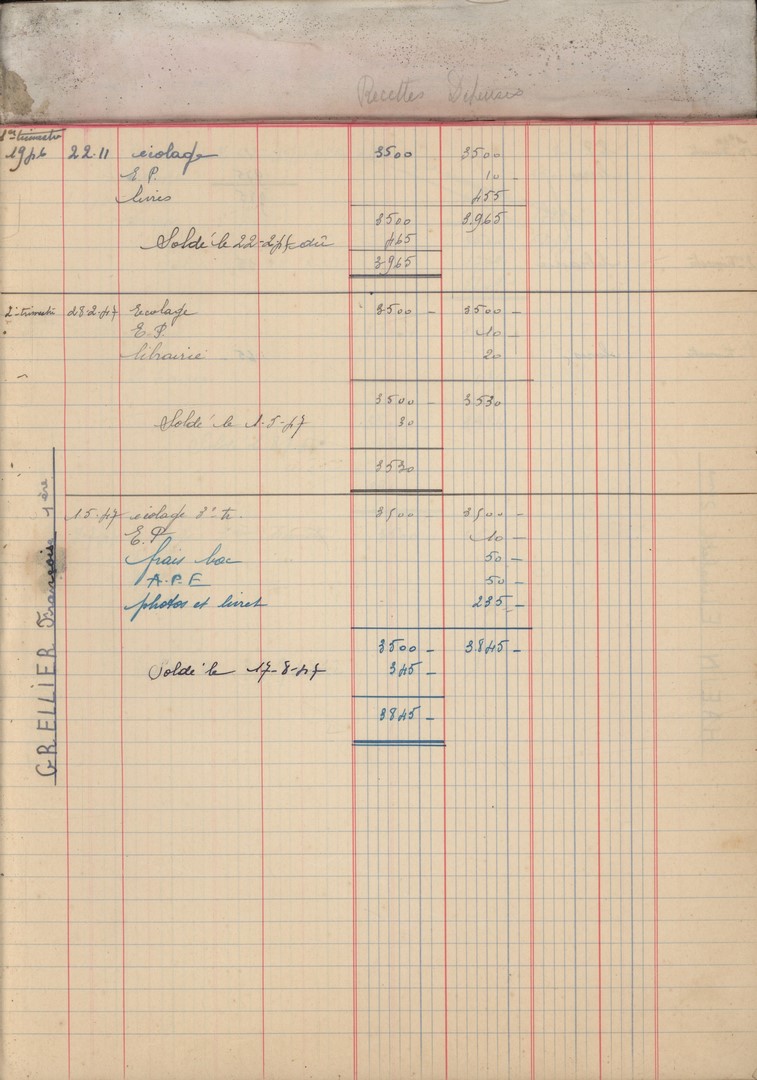 Recettes Dépenses
1er trimestre
1946 22.11 écolage 3500 3500
E.P. 10 -
livres 455
3500 3.965
Soldé le 22-2-47 dû 465
3965
2e trimestre 28.2.47 Ecolage 3500 - 3500 -
E.P. 10 -
librairie 20
3500 - 3530
Soldé le 1.5.47 30
3530
1 5.47 écolage 3e tr. 3500 - 3500 -
E.P 10 -
frais bac 50 -
A.P.E 50 -
photos et livret 235 -
3500 - 3.845 -
Soldé le 17-8-47 345 -
3845 -
GRELLIER François 1ère